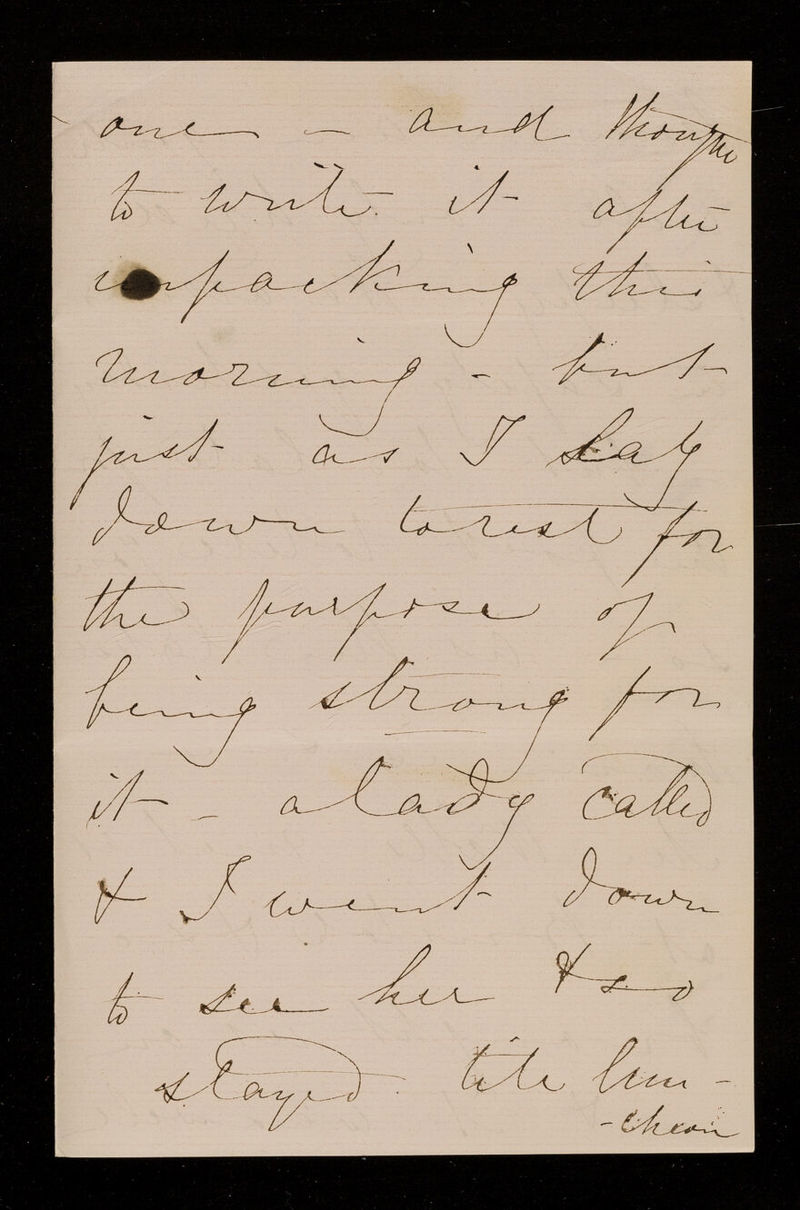 one - and thought
to write it after
unpacking this
morning - but
just as I lay
down to rest for
the purpose of
being strong for
it - a lady called
& I went down
to see her & so
stayed till lun-
-cheon